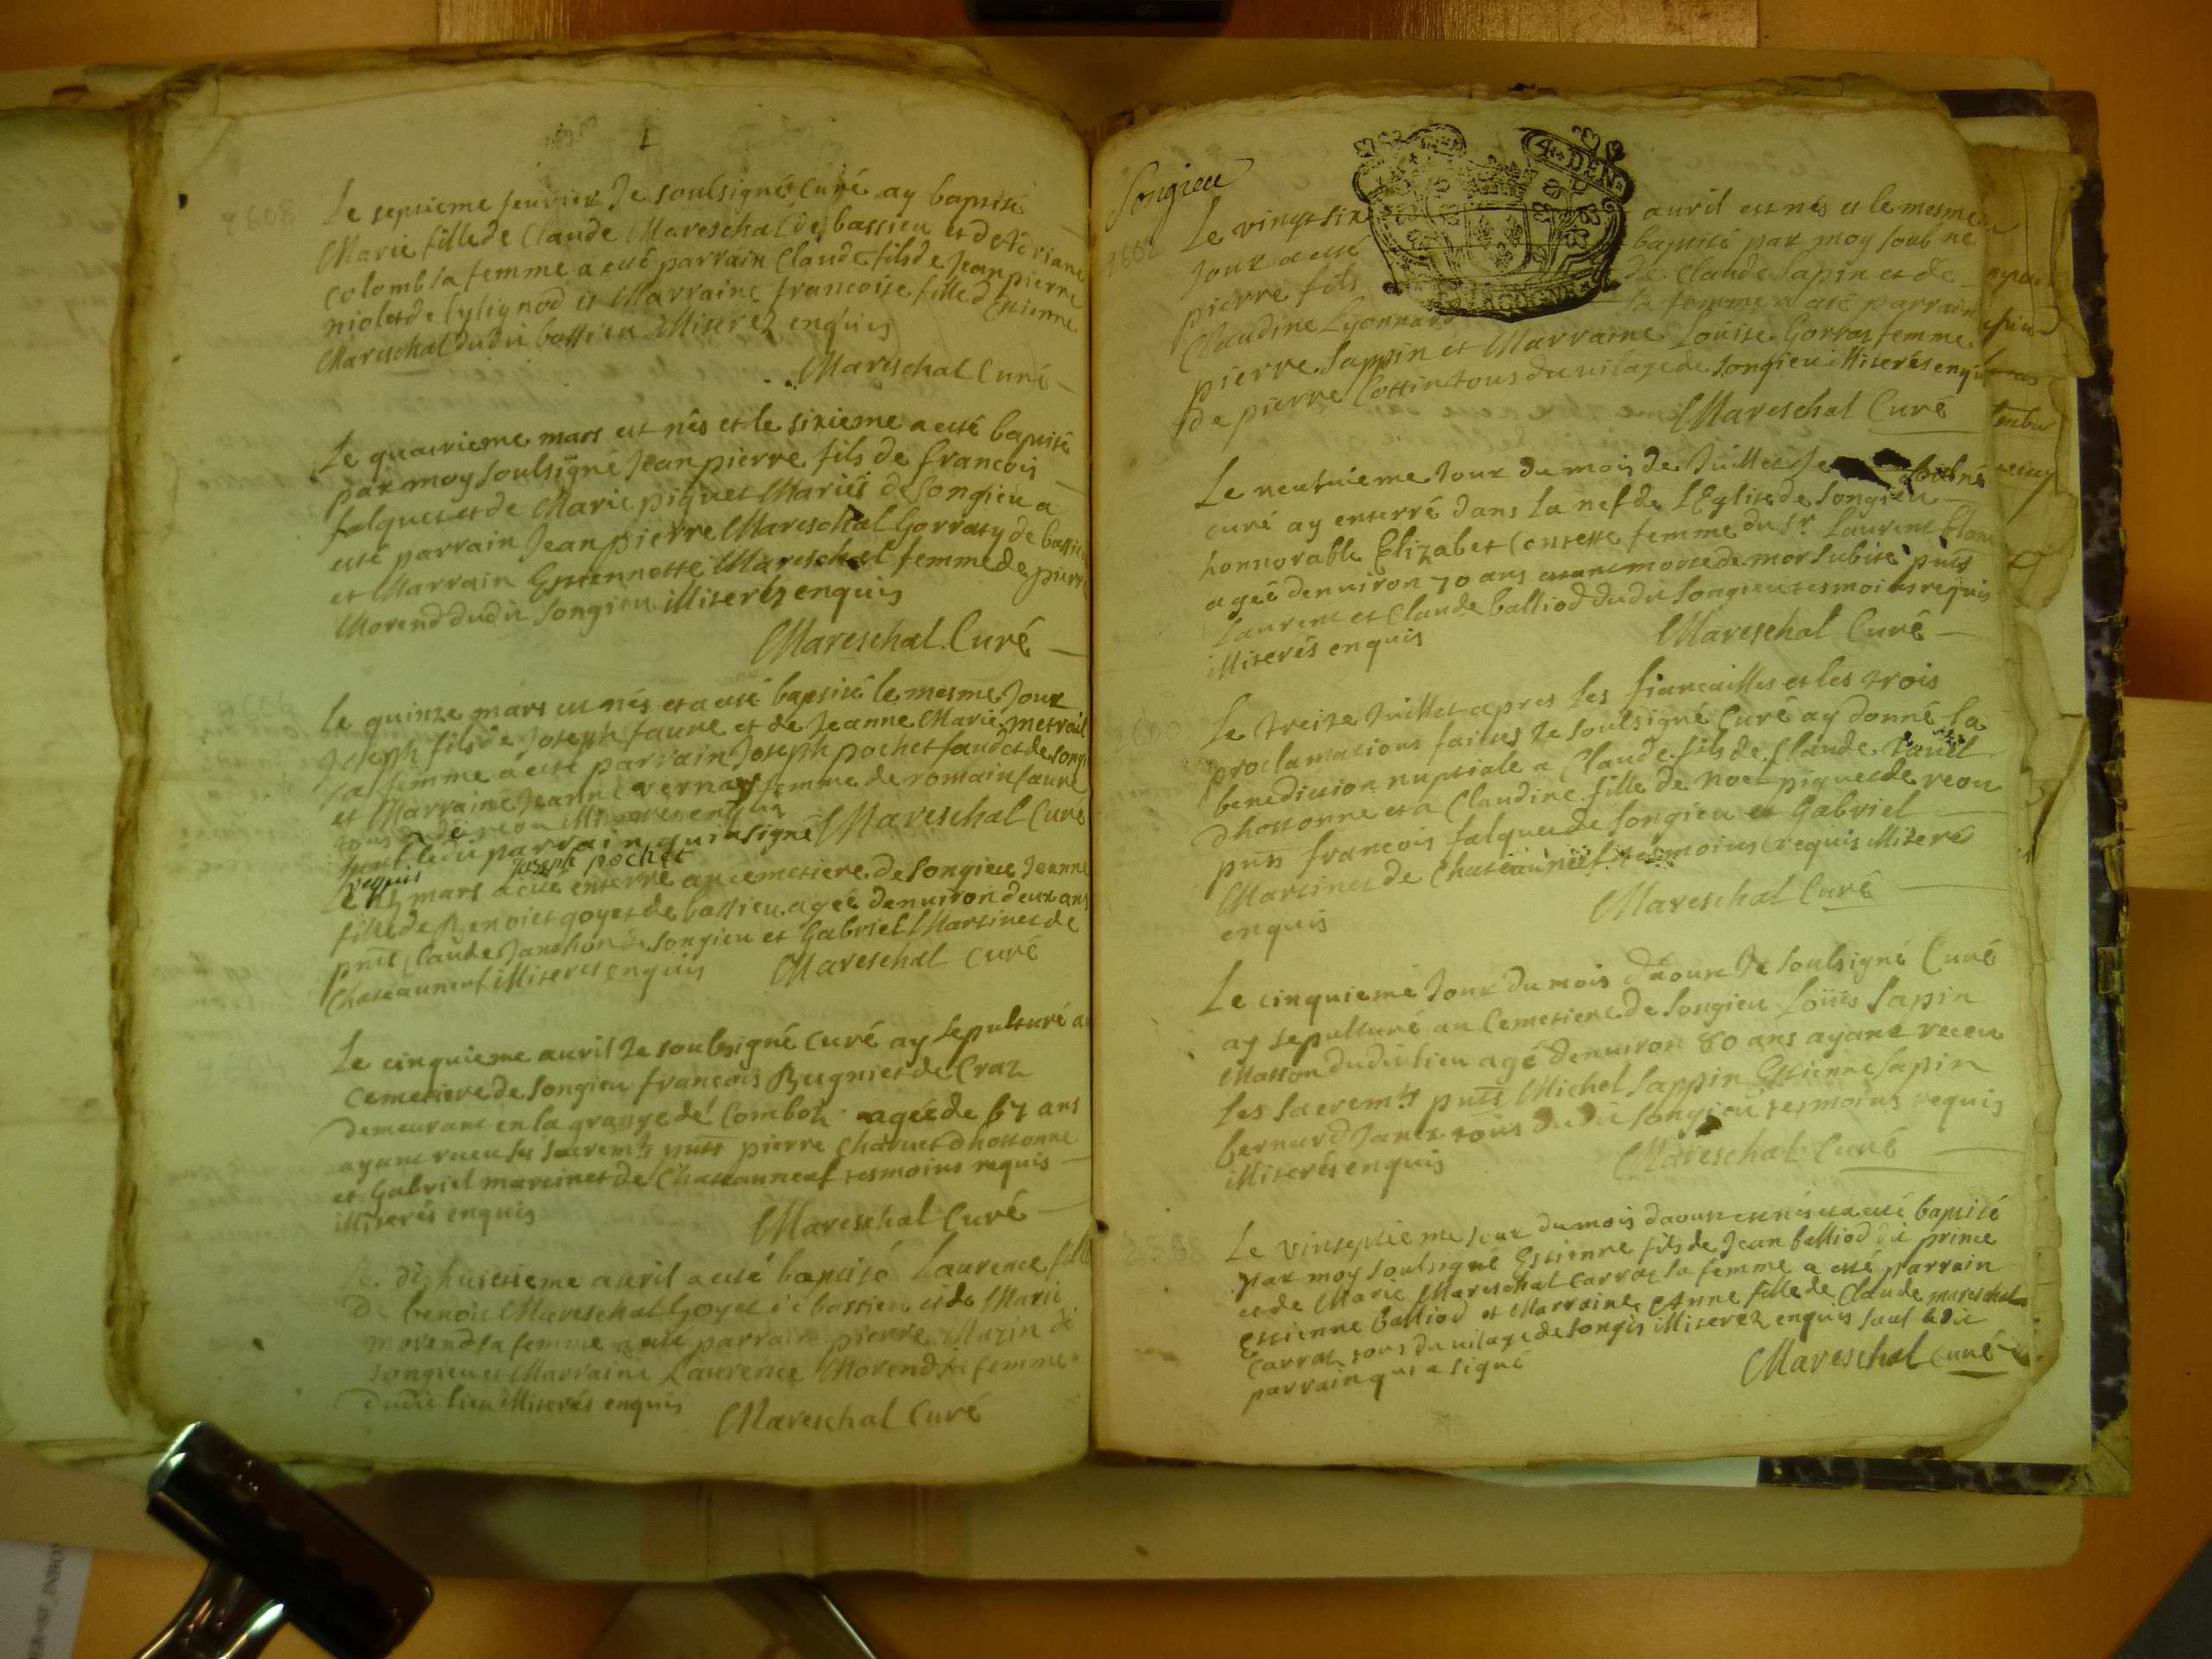 Le septieme feurier Je soulsigné Curé ay baptisé
Marie fille de Claude Mareschal de bassieu et deteriane
Colomb sa femme a esté parrain Claude fils de Jean pierre
niolet de lylignod et Marraine francoise fille d'estienne
Mareschal dudit bassieu illiterez enquis
Mareschal Curé
Le quatrieme mars est nés et le sixieme a esté baptisé
par moy soulsigné Jean pierre fils de francois
falquet et de Marie piquet Mariés de Songieu a
esté parrain Jean pierre Mareschal Gorraty de bassieu
et Marrain Estiennette Mareschal femme de pierre
Morend dudit Songieu illiterés enquis
Mareschal Curé
Le quinze mars est nés et a esté baptisé le mesme Jour
Joseph fils de Joseph faure et de Jeanne Marie metrail
sa femme a esté parrain Joseph pochet faudet de Song
et Marraine Jeanne vernay femme de romain faure
tous de reou illiterés enquis
sauf ledit parrain qui a signé Mareschal Curé
requis Joseph pochet
mars a esté enterré au cemetiere de Songieu Jeanne
fille de Benoict goyet de bassieu agée denuiron deux ans
pnts Claude Janthon de Songieu et Gabriel Martinet de
Chateauneuf illiterés enquis Mareschal Curé
Le cinquieme auril Je soubsigné Curé ay sepulturé au
cemetiere de Songieu francois Bugniet de Craz
demeurant en la grange de Comboz agée de 67 ans
ayant receu les sacremts pnts pierre Charuet d'hostonne
et Gabriel martinet de Chateauneuf tesmoins requis
illiterés enquis
Mareschal Curé
Le dixhuictieme auril a esté baptisé Laurence fille
de benoit Mareschal Goyet de bassieu et de Marie
morend sa femme a esté parrain pierre Mazin de
songieu et Marraine Laurence Morend sa femme
dudit lieu illiterés enquis
Mareschal Curé
Songieu
4 DEN
Le vingt six auril est nés et le mesme
Jour a esté baptisé par moy soubne
pierre fils de Claude Sapin et de
Claudine Lyonnard sa femme a esté parrain
pierre Sappin et Marraine Louise Gorraz femme
de pierre Cottin tous du uilage de Songieu illiterés enquis
Mareschal Curé
Le neufuieme Jour du mois de Juillet Je soubné
curé ay enterré dans la nef de l'Eglise de Songieu
honnorable Elizabet Contesse femme du Sr. Laurent
agée denuiron 70 ans estant morte de mort subite pnts
Laurent et Claude balliod dudit Songieu tesmoins requis
illiterés enquis
Mareschal Curé
Le treize Juillet apres les fiancailles et les trois
proclamations faittes Je soulsigné Curé ay donné la
benediction nuptiale a Claude fils de Claude
dhostonne et a Claudine fille de noel piquet de reou
pnts francois falquet de Songieu et Gabriel
Martinet de Chateauneuf tesmoins requis illiteré
enquis
Mareschal Curé
Le cinquieme Jour du mois d'aoust Je soulsigné Curé
ay sepulturé au Cemetiere de Songieu Loüis Sapin
Masson dudit lieu agé denuiron 80 ans ayant receu
les sacremts pnts Michel Sappin Estienne Sapin
bernard Janet tous dudit Songieu tesmoins requis
illiterés enquis
Mareschal Curé
Le vinseptieme Jour du mois daoust est nés et a esté baptisé
par moy soulsigné Estienne fils de Jean balliod dit prince
et de Marie Mareschal Carraz sa femme a esté parrain
Estienne balliod et Marraine Anne fille de Claude mareschal
Carraz tous du uilage de Songis illiterez enquis sauf ledit
parrain qui a signé
Mareschal Curé